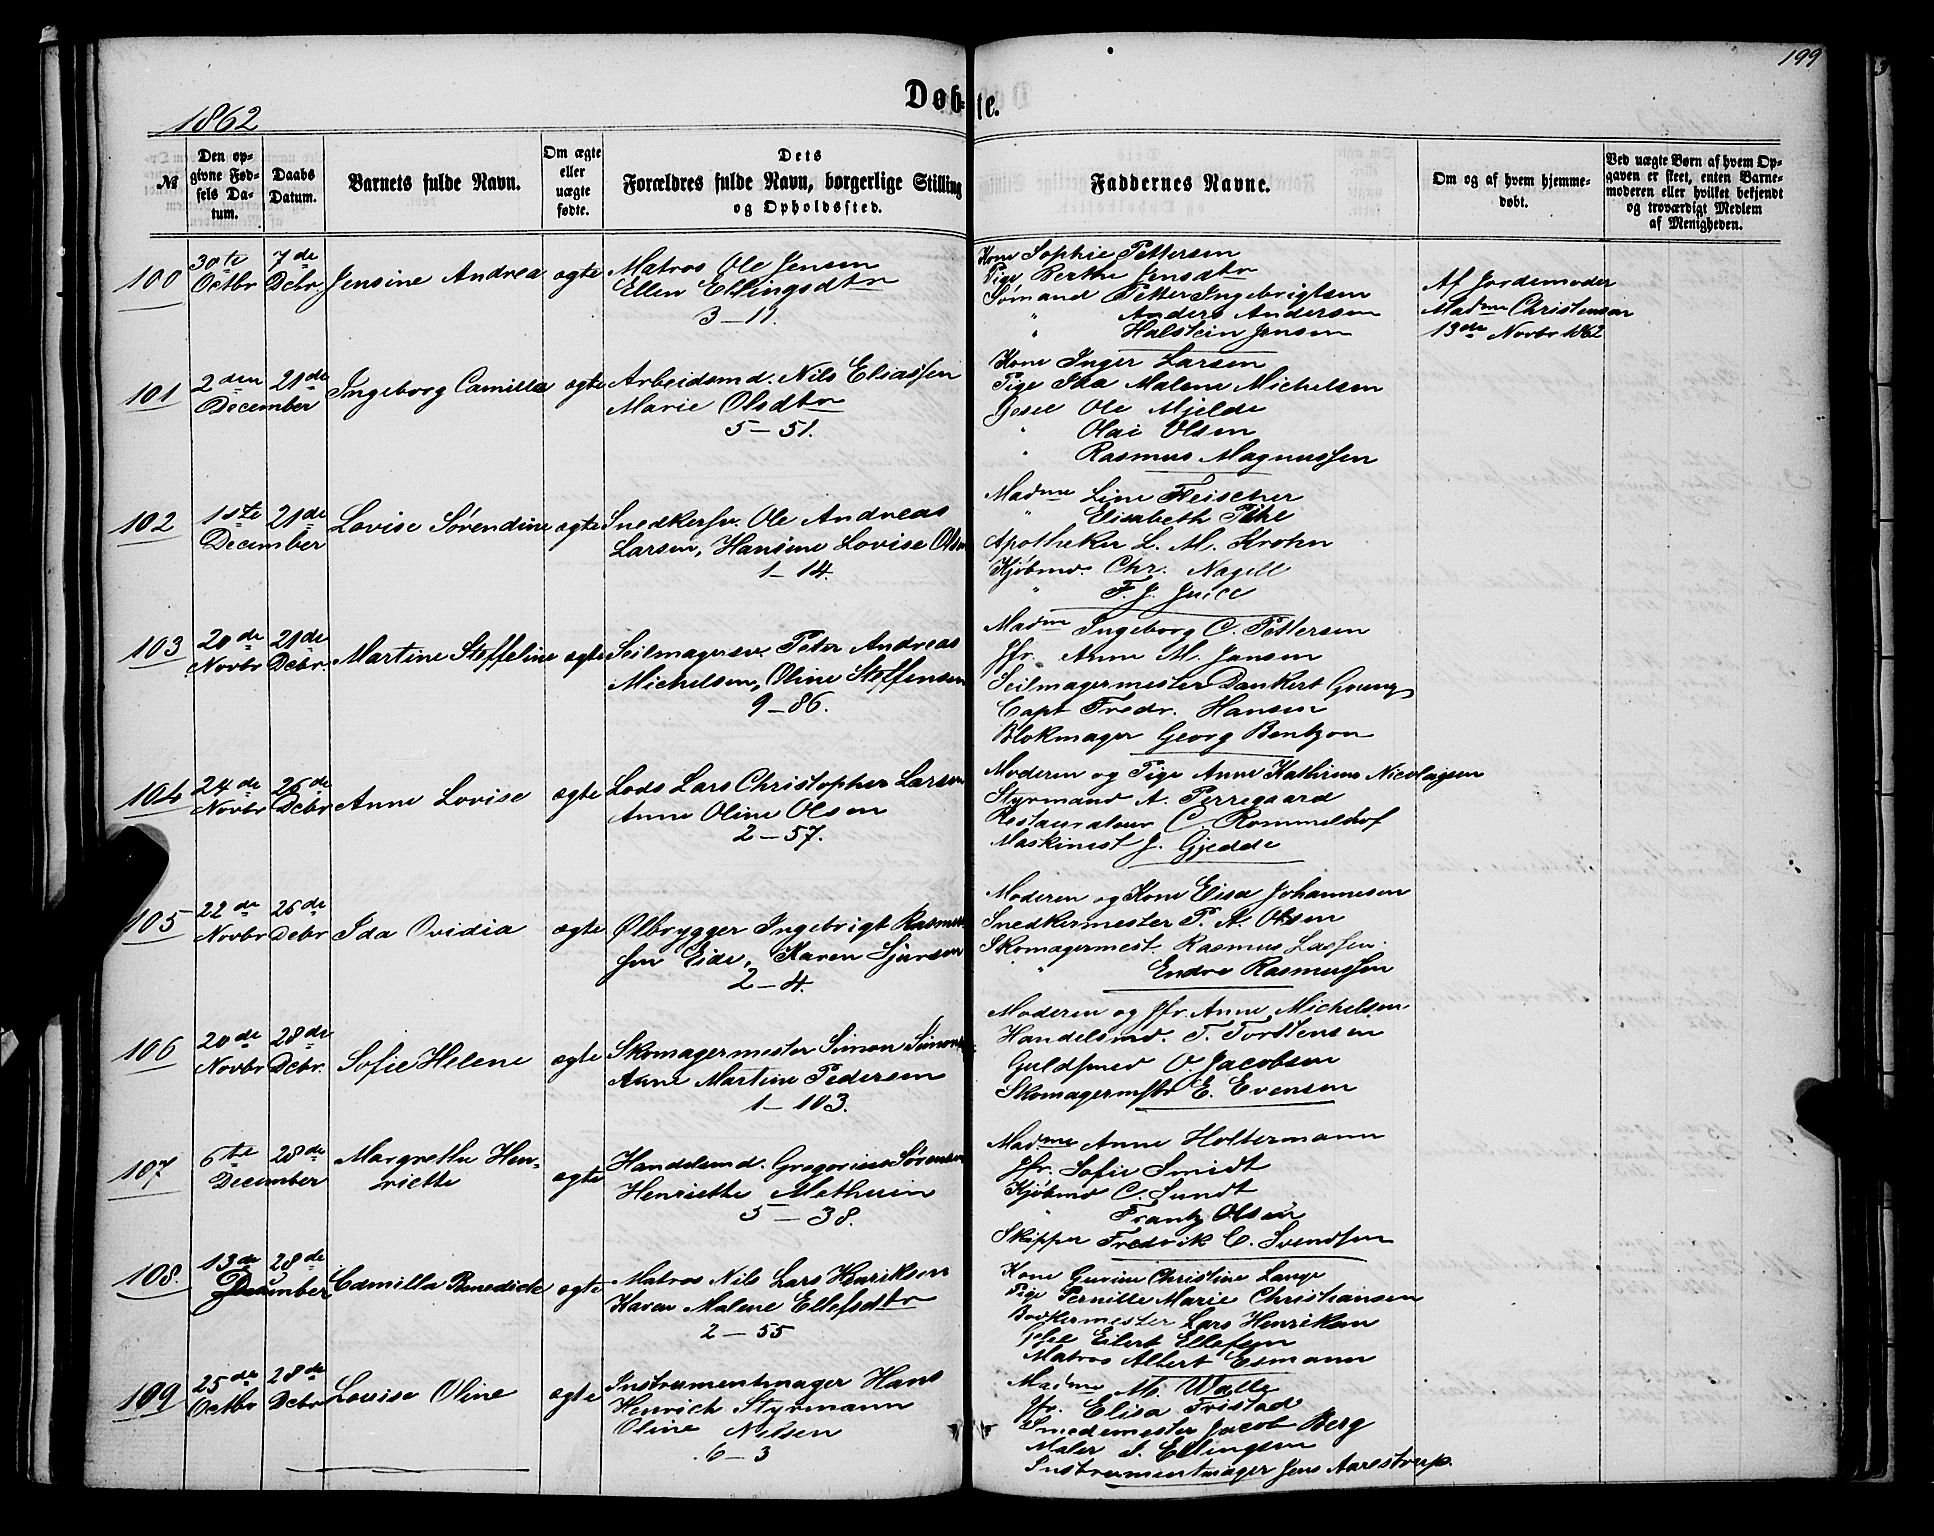 199
1862
Døbte.
№
Den opgivne Fødsels Datum.
Daabs Datum.
Barnets fulde Navn.
Om ægte eller uægte fødte.
Dets Forældres fulde Navn, borgerlige Stilling og Opholdssted.
Faddernes Navne.
Om og af hvem hjemmedøbt.
Ved uægte Børn af hvem Opgaven er skeet, enten Barnemoderen eller hvilket bekjendt og troværdigt Medlem af Menigheden.
100 30te Octbr 7de Dcbr. Jensine Andrea ægte
Matros Ole Jensen
Ellen Ellingsdtr
3-11
Kone Sophie Pettersen
Pige Berthe Jensdtr
Sømand Petter Ingebrigtsen
" Anders Andersen
" Halstein Jensen
Af Jordemoder
Madme Christensen
13de Novbr 1862
101 2den December 21de Ingeborg Camilla ægte
Arbeidsmd. Nils Eliassen
Marie Olsdtr
5-51.
Kone Inger Larsen
Pige Ska Malene Michelsen
Gesel Ole Mjelde
" Olai Olsen
" Rasmus Magnussen
102 1ste December 21de Lovise Sørendine ægte
Snedkersv. Ole Andreas
Larsen, Hansine Lovise Olsen
1-14.
Madme Line Fleischer
" Elisabeth Pihl
Apotheker L. M. Krohn
Kjøbmd. Chr. Nagell
" F. J.
103 20de Novbr 21de Dcbr. Martine Steffeline ægte
Seilmagersv. Peter Andreas
Michelsen, Oline Steffensen
9-86.
Madme Ingeborg C. Pettersen
Jfr. Anne M. Jansen
Seilmagermester Dankert
Capt Fredr. Hansen
Blokmager Georg Bentzon
104 24de Novbr 26de Dcbr Anne Lovise ægte
Lods Lars Christopher Larsen
Anne Oline Olsen
2-57.
Moderen og Pige Anne Kathrine Nicolaysen
Styrmand A. Perregaard
Restaurateur C. Rommelhof
Maskinist J. Gjedde
105 22de Novbr 26de Dcbr Ida Ovidia ægte
Ølbrygger Ingebrigt Rasmus
sen Eide, Karen Sjursen
2-4.
Moderen og Kone Elisa Johannesen
Snedkermester P. A. Olsen
Skomagermest Rasmus Lassen.
" Endre Rasmussen
106 20de Novbr 28de Dcbr. Sofie Helene ægte
Skomagermester Simon Simonsen
Anne Martine Pedersen
1-103.
Moderen og Jfr. Anne Michelsen
Handelsmd. T. Torstensen
Guldsmed O. Jacobsen
Skomagermstr E. Evensen
107 6te December 28de Margrethe Hen-
riette ægte
Handelsmd. Gregorius Sørensen
Henriette Methuin
5-38.
Madme Anne Holtermann
Jfr. Sofie Smidt
Kjøbmd C. Sundt
" Frantz Olsen
Skipper Fredrik C. Svendsen
108. 13de December 28de Camilla Benedicte ægte
Matros Nils Lars Henriksen
Karen Malene Ellefsdtr
2-55
Kone Gurine Christine Lange
Pige Pernille Marie Christiansen
Bødkermester Lars Henriksen
Gesel Eilert Ellefsen
Matros Albert Esmann
109 25de Octbr 28de Dcbr Louise Oline ægte
Instrumentmager Hans
Henrich Styrmann
Oline Nilsen
6-3
Madme M. Walle
Jfr. Elisa Fristad
Smedemester Jacob Berg
Maler S. Ellingsen
Instrumentmager Jens Aarestrup.